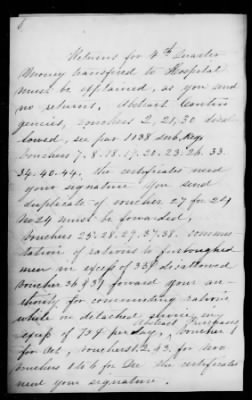 Returns for 4th Quarter
Money transfired to Hospital
must be explained, as you send
no returns. Abstract Contin
gencies, vouchers 2, 21, 30 disal
lowed, see par 1138 sub. Reg.
Vouchers 7. 8. 18. 19. 20. 23. 26. 33.
34. 40. 44. the certificates need
your signature you send
duplicate of voucher 27 for 24
No 24 must be forwarded,
Vouchers 25. 28. 29. 37. 38. commu-
tation of rations to furloughed
men in excess of 33¢ disallowed
Voucher 36 & 39 forward your au-
thority for commuting rations
while on detached service, in
excess of 75¢ per day, Abstract
Voucher 1
for Oct, vouchers 1. 2. 43. for Nov
vouchers 1 to 6 for Dec the certificates
need your signature.